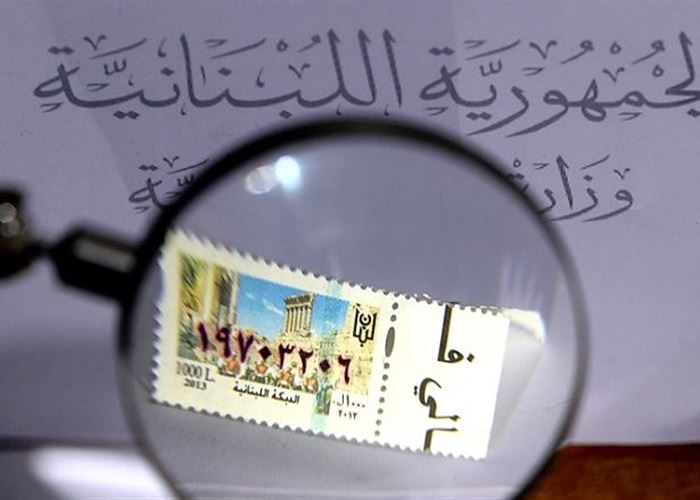 الجُمْهُوريَّة اللُبْنَانيَّة
وزارة
لبنان
١٩٧٠٣٢٠٦
1000 L.
2013
الدبكة اللبنانية
١٠٠٠ل.
٢٠١٣